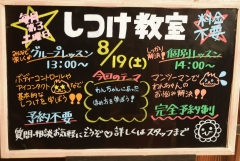 毎月第3土曜日
しつけ教室
料金不要
8/19(土)
グループレッスン
13:00〜
しっかり解決!
個別レッスン
14:00〜
ボディーコントロールや
アイコンタクトなど
基本的な
しつけを学ぼう!!
今回のテーマ
わんちゃんにあった
ほめ方を学ぼう!
ワンツーマンで
わんちゃんの
お悩み解決!!
予約不要
完全予約制
質問・相談お気軽にどうぞ♡詳しくはスタッフまで